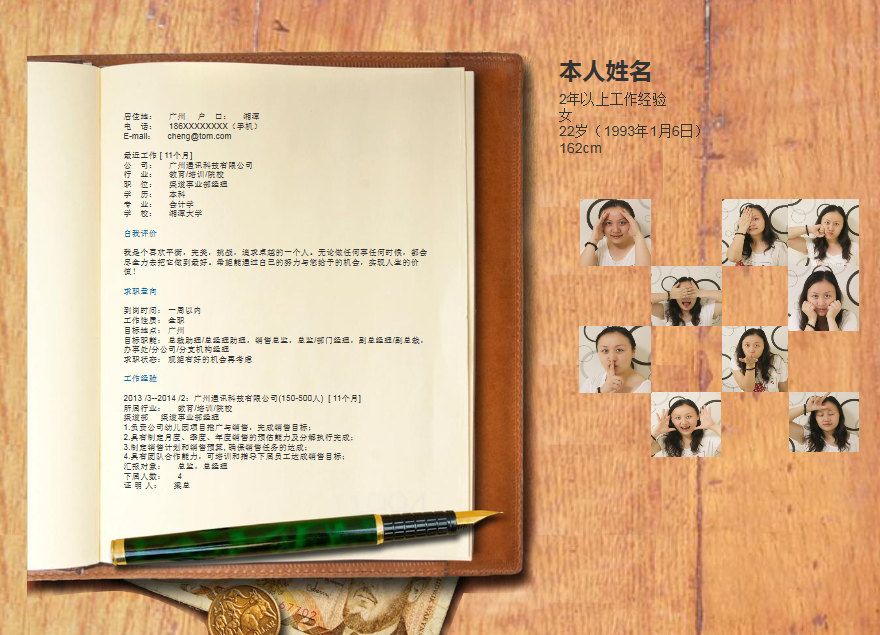 本人姓名
2年以上工作经验
女
22岁（1993年1月6日）
162cm
居住地： 广州 户 口： 湘潭
电 话： 186XXXXXXXX（手机）
E-mail： cheng@tom.com
最近工作 [ 11个月]
公 司： 广州通讯科技有限公司
行 业： 教育/培训/院校
职 位： 渠道事业部经理
学 历： 本科
专 业： 会计学
学 校： 湘潭大学
自我评价
我是个喜欢平衡，完美，挑战，追求卓越的一个人。无论做任何事任何时候，都会
尽全力去把它做到最好。希望能通过自己的努力与您给予的机会，实现人生的价
值！
求职意向
到岗时间： 一周以内
工作性质： 全职
目标地点： 广州
目标职能： 总裁助理/总经理助理，销售总监，总监/部门经理，副总经理/副总裁，
办事处/分公司/分支机构经理
求职状态： 观望有好的机会再考虑
工作经验
2013 /3--2014 /2：广州通讯科技有限公司(150-500人) [ 11个月]
所属行业： 教育/培训/院校
渠道部 渠道事业部经理
1.负责公司幼儿园项目推广与销售，完成销售目标；
2.具有制定月度、季度、年度销售的预估能力及分解执行完成；
3.制定销售计划和销售预算,确保销售任务的达成；
4.具有团队合作能力，可培训和指导下属员工达成销售目标；
汇报对象： 总监，总经理
下属人数： 4
证 明 人： 梁总